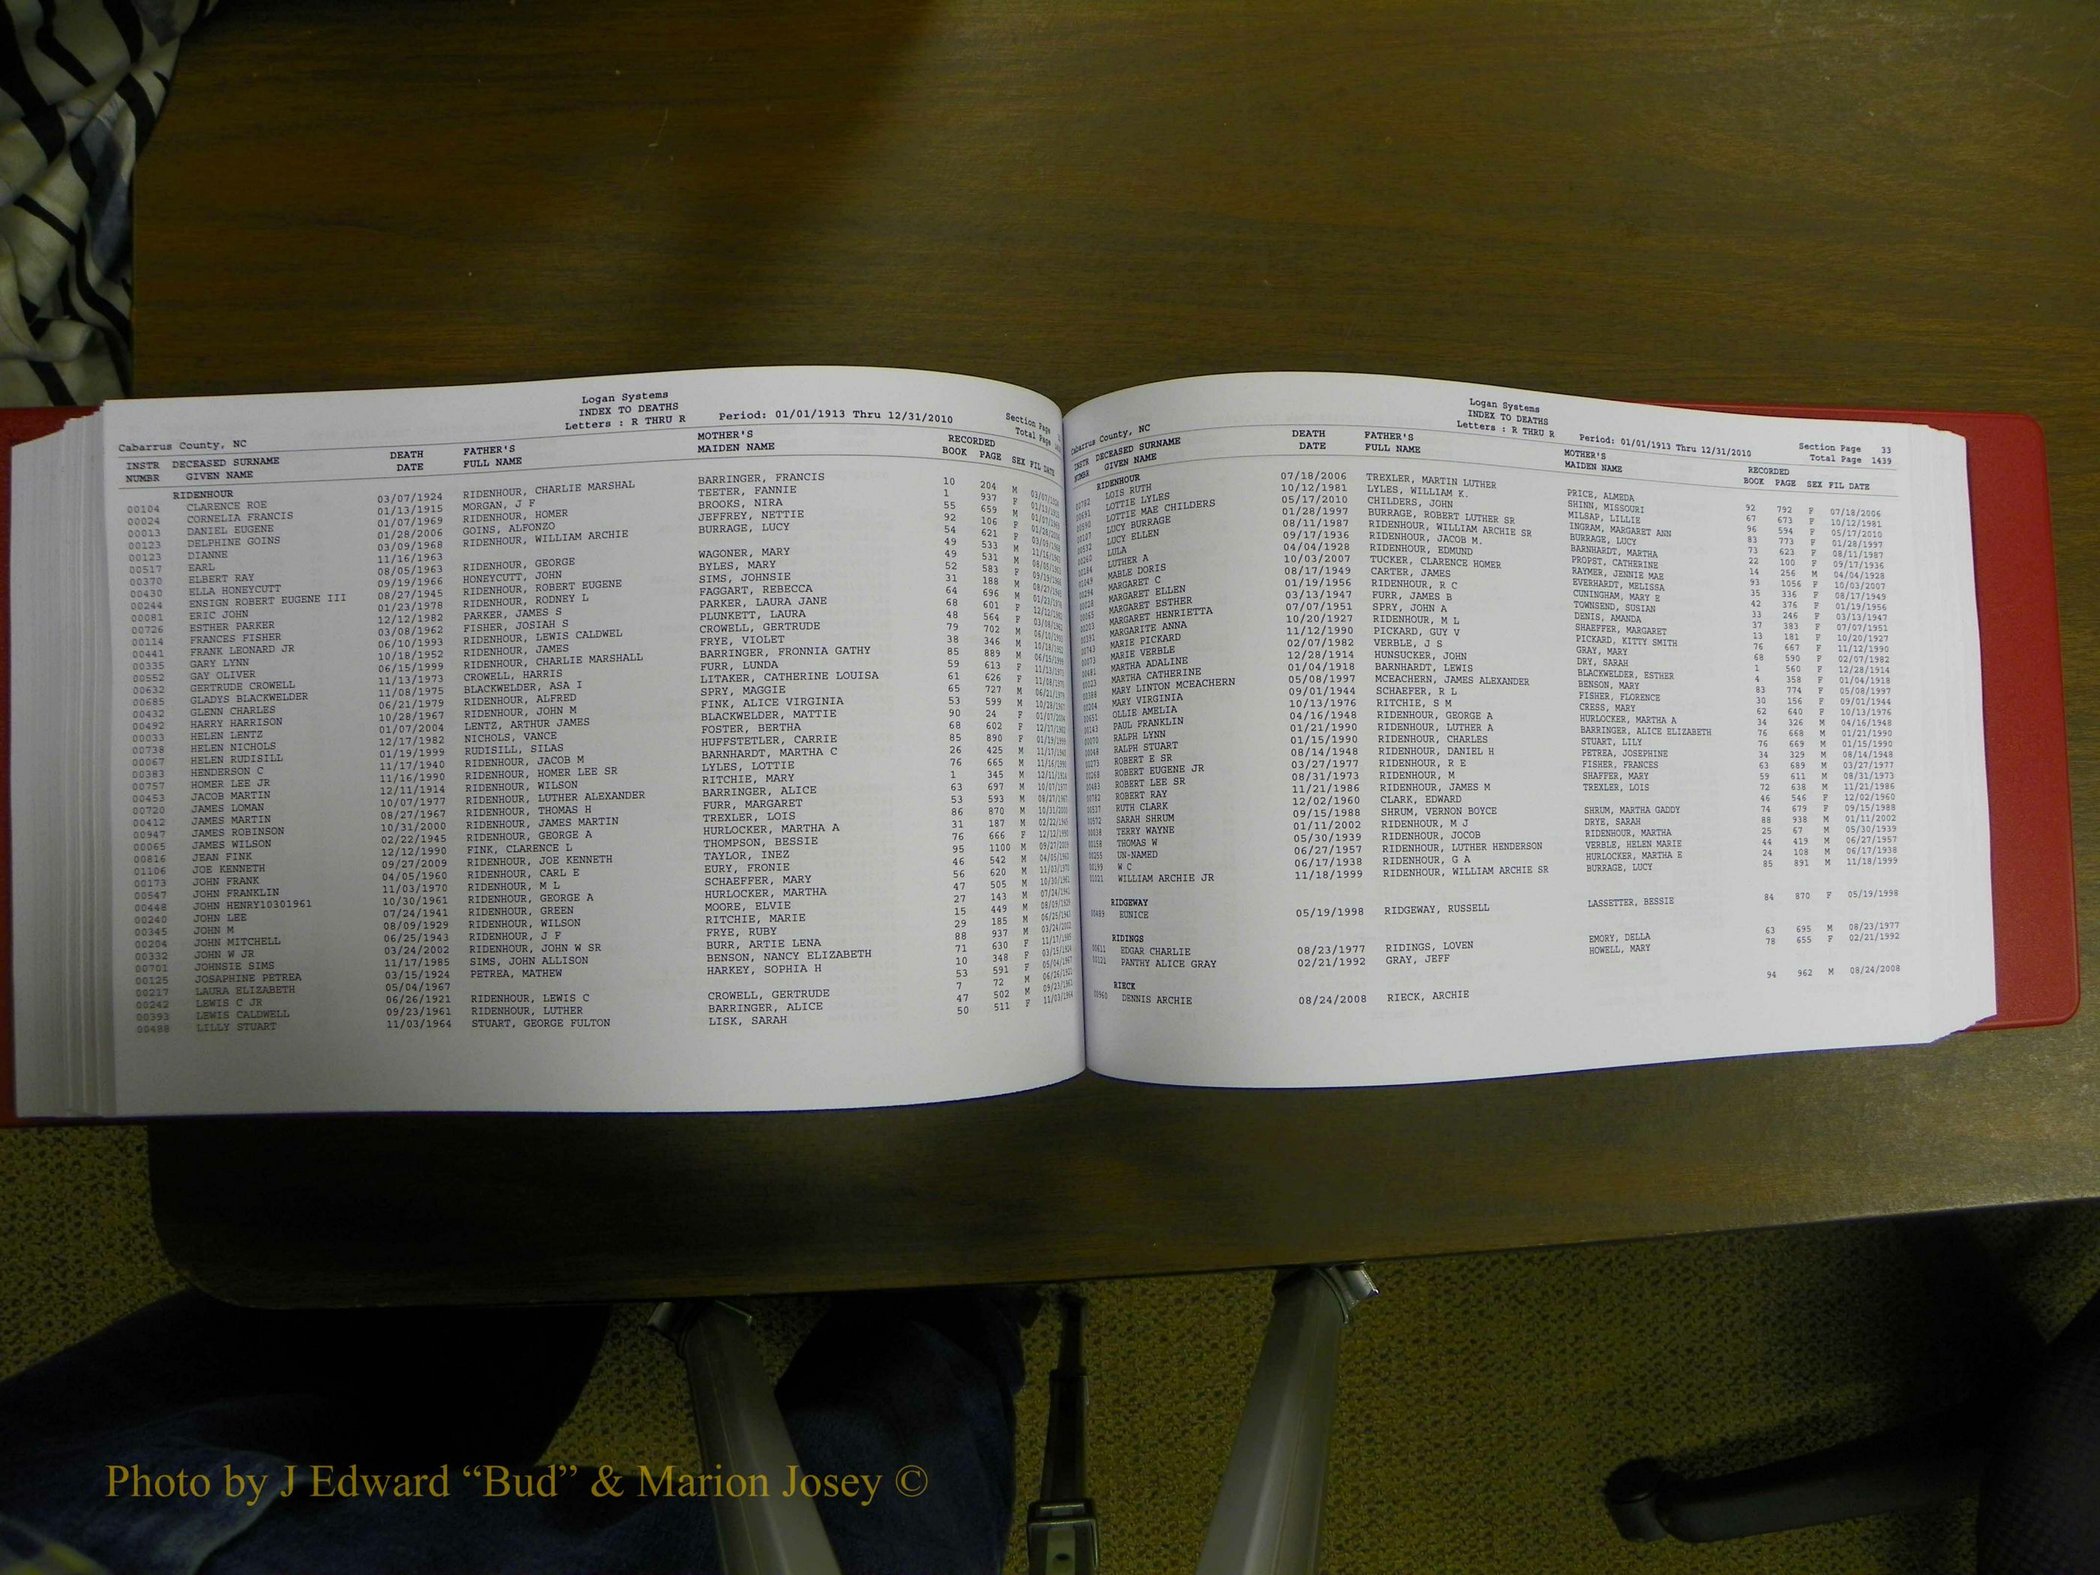 Logan Systems
INDEX TO DEATHS
Cabarrus County, NC Letters : R THRU R Period: 01/01/1913 Thru 12/31/2010 Section Page
Total Page
INSTR DECEASED SURNAME DEATH FATHER'S MOTHER'S RECORDED
NUMBR GIVEN NAME DATE FULL NAME MAIDEN NAME BOOK PAGE SEX FIL DATE
RIDENHOUR
00104 CLARENCE ROE 03/07/1924 RIDENHOUR, CHARLIE MARSHAL BARRINGER, FRANCIS 10 204 M
00024 CORNELIA FRANCIS 01/13/1915 MORGAN, J F TEETER, FANNIE 1 937 F
00013 DANIEL EUGENE 01/07/1969 RIDENHOUR, HOMER BROOKS, NIRA 55 659 M
00123 DELPHINE GOINS 01/28/2006 GOINS, ALFONZO JEFFREY, NETTIE 92 106 F
00123 DIANNE 03/09/1968 RIDENHOUR, WILLIAM ARCHIE BURRAGE, LUCY 54 621 F
00517 EARL 11/16/1963 49 533 M
00370 ELBERT RAY 08/05/1963 RIDENHOUR, GEORGE WAGONER, MARY 49 531 M
00430 ELLA HONEYCUTT 09/19/1966 HONEYCUTT, JOHN BYLES, MARY 52 583 F
00244 ENSIGN ROBERT EUGENE III 08/27/1945 RIDENHOUR, ROBERT EUGENE SIMS, JOHNSIE 31 188 M
00081 ERIC JOHN 01/23/1978 RIDENHOUR, RODNEY L FAGGART, REBECCA 64 696 M
00726 ESTHER PARKER 12/12/1982 PARKER, JAMES S PARKER, LAURA JANE 68 601 F
00114 FRANCES FISHER 03/08/1962 FISHER, JOSIAH S PLUNKETT, LAURA 48 564 F
00441 FRANK LEONARD JR 06/10/1993 RIDENHOUR, LEWIS CALDWEL CROWELL, GERTRUDE 79 702 M
00335 GARY LYNN 10/18/1952 RIDENHOUR, JAMES FRYE, VIOLET 38 346 M
00552 GAY OLIVER 06/15/1999 RIDENHOUR, CHARLIE MARSHALL BARRINGER, FRONNIA GATHY 85 889 M
00632 GERTRUDE CROWELL 11/13/1973 CROWELL, HARRIS FURR, LUNDA 59 613 F
00685 GLADYS BLACKWELDER 11/08/1975 BLACKWELDER, ASA I LITAKER, CATHERINE LOUISA 61 626 F
00432 GLENN CHARLES 06/21/1979 RIDENHOUR, ALFRED SPRY, MAGGIE 65 727 M
00492 HARRY HARRISON 10/28/1967 RIDENHOUR, JOHN M FINK, ALICE VIRGINIA 53 599 M
00033 HELEN LENTZ 01/07/2004 LENTZ, ARTHUR JAMES BLACKWELDER, MATTIE 90 24 F
00738 HELEN NICHOLS 12/17/1982 NICHOLS, VANCE FOSTER, BERTHA 68 602 F
00067 HELEN RUDISILL 01/19/1999 RUDISILL, SILAS HUFFSTETLER, CARRIE 85 890 F
00383 HENDERSON C 11/17/1940 RIDENHOUR, JACOB M BARNHARDT, MARTHA C 26 425 M
00757 HOMER LEE JR 11/16/1990 RIDENHOUR, HOMER LEE SR LYLES, LOTTIE 76 665 M
00453 JACOB MARTIN 12/11/1914 RIDENHOUR, WILSON RITCHIE, MARY 1 345 M
00720 JAMES LOMAN 10/07/1977 RIDENHOUR, LUTHER ALEXANDER BARRINGER, ALICE 63 697 M
00412 JAMES MARTIN 08/27/1967 RIDENHOUR, THOMAS H FURR, MARGARET 53 593 M
00947 JAMES ROBINSON 10/31/2000 RIDENHOUR, JAMES MARTIN TREXLER, LOIS 86 870 M
00065 JAMES WILSON 02/22/1945 RIDENHOUR, GEORGE A HURLOCKER, MARTHA A 31 187 M
00816 JEAN FINK 12/12/1990 FINK, CLARENCE L THOMPSON, BESSIE 76 666 F
01106 JOE KENNETH 09/27/2009 RIDENHOUR, JOE KENNETH TAYLOR, INEZ 95 1100 M
00173 JOHN FRANK 04/05/1960 RIDENHOUR, CARL E EURY, FRONIE 46 542 M
00547 JOHN FRANKLIN 11/03/1970 RIDENHOUR, M L SCHAEFFER, MARY 56 620 M
00448 JOHN HENRY10301961 10/30/1961 RIDENHOUR, GEORGE A HURLOCKER, MARTHA 47 505 M
00240 JOHN LEE 07/24/1941 RIDENHOUR, GREEN MOORE, ELVIE 27 143 M
00345 JOHN M 08/09/1929 RIDENHOUR, WILSON RITCHIE, MARIE 15 449 M
00204 JOHN MITCHELL 06/25/1943 RIDENHOUR, J F FRYE, RUBY 29 185 M
00332 JOHN W JR 03/24/2002 RIDENHOUR, JOHN W SR BURR, ARTIE LENA 88 937 M
00701 JOHNSIE SIMS 11/17/1985 SIMS, JOHN ALLISON BENSON, NANCY ELIZABETH 71 630 F
00125 JOSAPHINE PETREA 03/15/1924 PETREA, MATHEW HARKEY, SOPHIA H 10 348 F
00217 LAURA ELIZABETH 05/04/1967 53 591 F
00242 LEWIS C JR 06/26/1921 RIDENHOUR, LEWIS C CROWELL, GERTRUDE 7 72 M
00393 LEWIS CALDWELL 09/23/1961 RIDENHOUR, LUTHER BARRINGER, ALICE 47 502 M
00488 LILLY STUART 11/03/1964 STUART, GEORGE FULTON LISK, SARAH 50 511 F 11/03/1964
Logan Systems
INDEX TO DEATHS
Cabarrus County, NC Letters : R THRU R Period: 01/01/1913 Thru 12/31/2010 Section Page 33
Total Page 1439
INSTR DECEASED SURNAME DEATH FATHER'S MOTHER'S RECORDED
NUMBR GIVEN NAME DATE FULL NAME MAIDEN NAME BOOK PAGE SEX FIL DATE
RIDENHOUR
00782 LOIS RUTH 07/18/2006 TREXLER, MARTIN LUTHER PRICE, ALMEDA 92 792 F 07/18/2006
00691 LOTTIE LYLES 10/12/1981 LYLES, WILLIAM K. SHINN, MISSOURI 67 673 F 10/12/1981
00590 LOTTIE MAE CHILDERS 05/17/2010 CHILDERS, JOHN MILSAP, LILLIE 96 594 F 05/17/2010
00107 LUCY BURRAGE 01/28/1997 BURRAGE, ROBERT LUTHER SR INGRAM, MARGARET ANN 83 773 F 01/28/1997
00532 LUCY ELLEN 08/11/1987 RIDENHOUR, WILLIAM ARCHIE SR BURRAGE, LUCY 73 623 F 08/11/1987
00260 LULA 09/17/1936 RIDENHOUR, JACOB M. BARNHARDT, MARTHA 22 100 F 09/17/1936
00184 LUTHER A 04/04/1928 RIDENHOUR, EDMUND PROPST, CATHERINE 14 256 M 04/04/1928
01049 MABLE DORIS 10/03/2007 TUCKER, CLARENCE HOMER RAYMER, JENNIE MAE 93 1056 F 10/03/2007
00294 MARGARET C 08/17/1949 CARTER, JAMES EVERHARDT, MELISSA 35 336 F 08/17/1949
00028 MARGARET ELLEN 01/19/1956 RIDENHOUR, R C CUNINGHAM, MARY E 42 376 F 01/19/1956
00065 MARGARET ESTHER 03/13/1947 FURR, JAMES B TOWNSEND, SUSIAN 33 246 F 03/13/1947
00203 MARGARET HENRIETTA 07/07/1951 SPRY, JOHN A DENIS, AMANDA 37 383 F 07/07/1951
00391 MARGARITE ANNA 10/20/1927 RIDENHOUR, M L SHAEFFER, MARGARET 13 181 F 10/20/1927
00743 MARIE PICKARD 11/12/1990 PICKARD, GUY V PICKARD, KITTY SMITH 76 667 F 11/12/1990
00073 MARIE VERBLE 02/07/1982 VERBLE, J S GRAY, MARY 68 590 F 02/07/1982
00481 MARTHA ADALINE 12/28/1914 HUNSUCKER, JOHN DRY, SARAH 1 560 F 12/28/1914
00023 MARTHA CATHERINE 01/04/1918 BARNHARDT, LEWIS BLACKWELDER, ESTHER 4 358 F 01/04/1918
00388 MARY LINTON MCEACHERN 05/08/1997 MCEACHERN, JAMES ALEXANDER BENSON, MARY 83 774 F 05/08/1997
00204 MARY VIRGINIA 09/01/1944 SCHAEFER, R L FISHER, FLORENCE 30 156 F 09/01/1944
00651 OLLIE AMELIA 10/13/1976 RITCHIE, S M CRESS, MARY 62 640 F 10/13/1976
00143 PAUL FRANKLIN 04/16/1948 RIDENHOUR, GEORGE A HURLOCKER, MARTHA A 34 326 M 04/16/1948
00070 RALPH LYNN 01/21/1990 RIDENHOUR, LUTHER A BARRINGER, ALICE ELIZABETH 76 668 M 01/21/1990
00048 RALPH STUART 01/15/1990 RIDENHOUR, CHARLES STUART, LILY 76 669 M 01/15/1990
00273 ROBERT E SR 08/14/1948 RIDENHOUR, DANIEL H PETREA, JOSEPHINE 34 329 M 08/14/1948
00268 ROBERT EUGENE JR 03/27/1977 RIDENHOUR, R E FISHER, FRANCES 63 689 M 03/27/1977
00483 ROBERT LEE SR 08/31/1973 RIDENHOUR, M SHAFFER, MARY 59 611 M 08/31/1973
00782 ROBERT RAY 11/21/1986 RIDENHOUR, JAMES M TREXLER, LOIS 72 638 M 11/21/1986
00537 RUTH CLARK 12/02/1960 CLARK, EDWARD 46 546 F 12/02/1960
00572 SARAH SHRUM 09/15/1988 SHRUM, VERNON BOYCE SHRUM, MARTHA GADDY 74 679 F 09/15/1988
00038 TERRY WAYNE 01/11/2002 RIDENHOUR, M J DRYE, SARAH 88 938 M 01/11/2002
00158 THOMAS W 05/30/1939 RIDENHOUR, JOCOB RIDENHOUR, MARTHA 25 67 M 05/30/1939
00255 UN-NAMED 06/27/1957 RIDENHOUR, LUTHER HENDERSON VERBLE, HELEN MARIE 44 419 M 06/27/1957
00199 W C 06/17/1938 RIDENHOUR, G A HURLOCKER, MARTHA E 24 108 M 06/17/1938
01021 WILLIAM ARCHIE JR 11/18/1999 RIDENHOUR, WILLIAM ARCHIE SR BURRAGE, LUCY 85 891 M 11/18/1999
RIDGEWAY
00489 EUNICE 05/19/1998 RIDGEWAY, RUSSELL LASSETTER, BESSIE 84 870 F 05/19/1998
RIDINGS
00611 EDGAR CHARLIE 08/23/1977 RIDINGS, LOVEN EMORY, DELLA 63 695 M 08/23/1977
00121 PANTHY ALICE GRAY 02/21/1992 GRAY, JEFF HOWELL, MARY 78 655 F 02/21/1992
RIECK
00960 DENNIS ARCHIE 08/24/2008 RIECK, ARCHIE 94 962 M 08/24/2008
Photo by J Edward “Bud” & Marion Josey ©